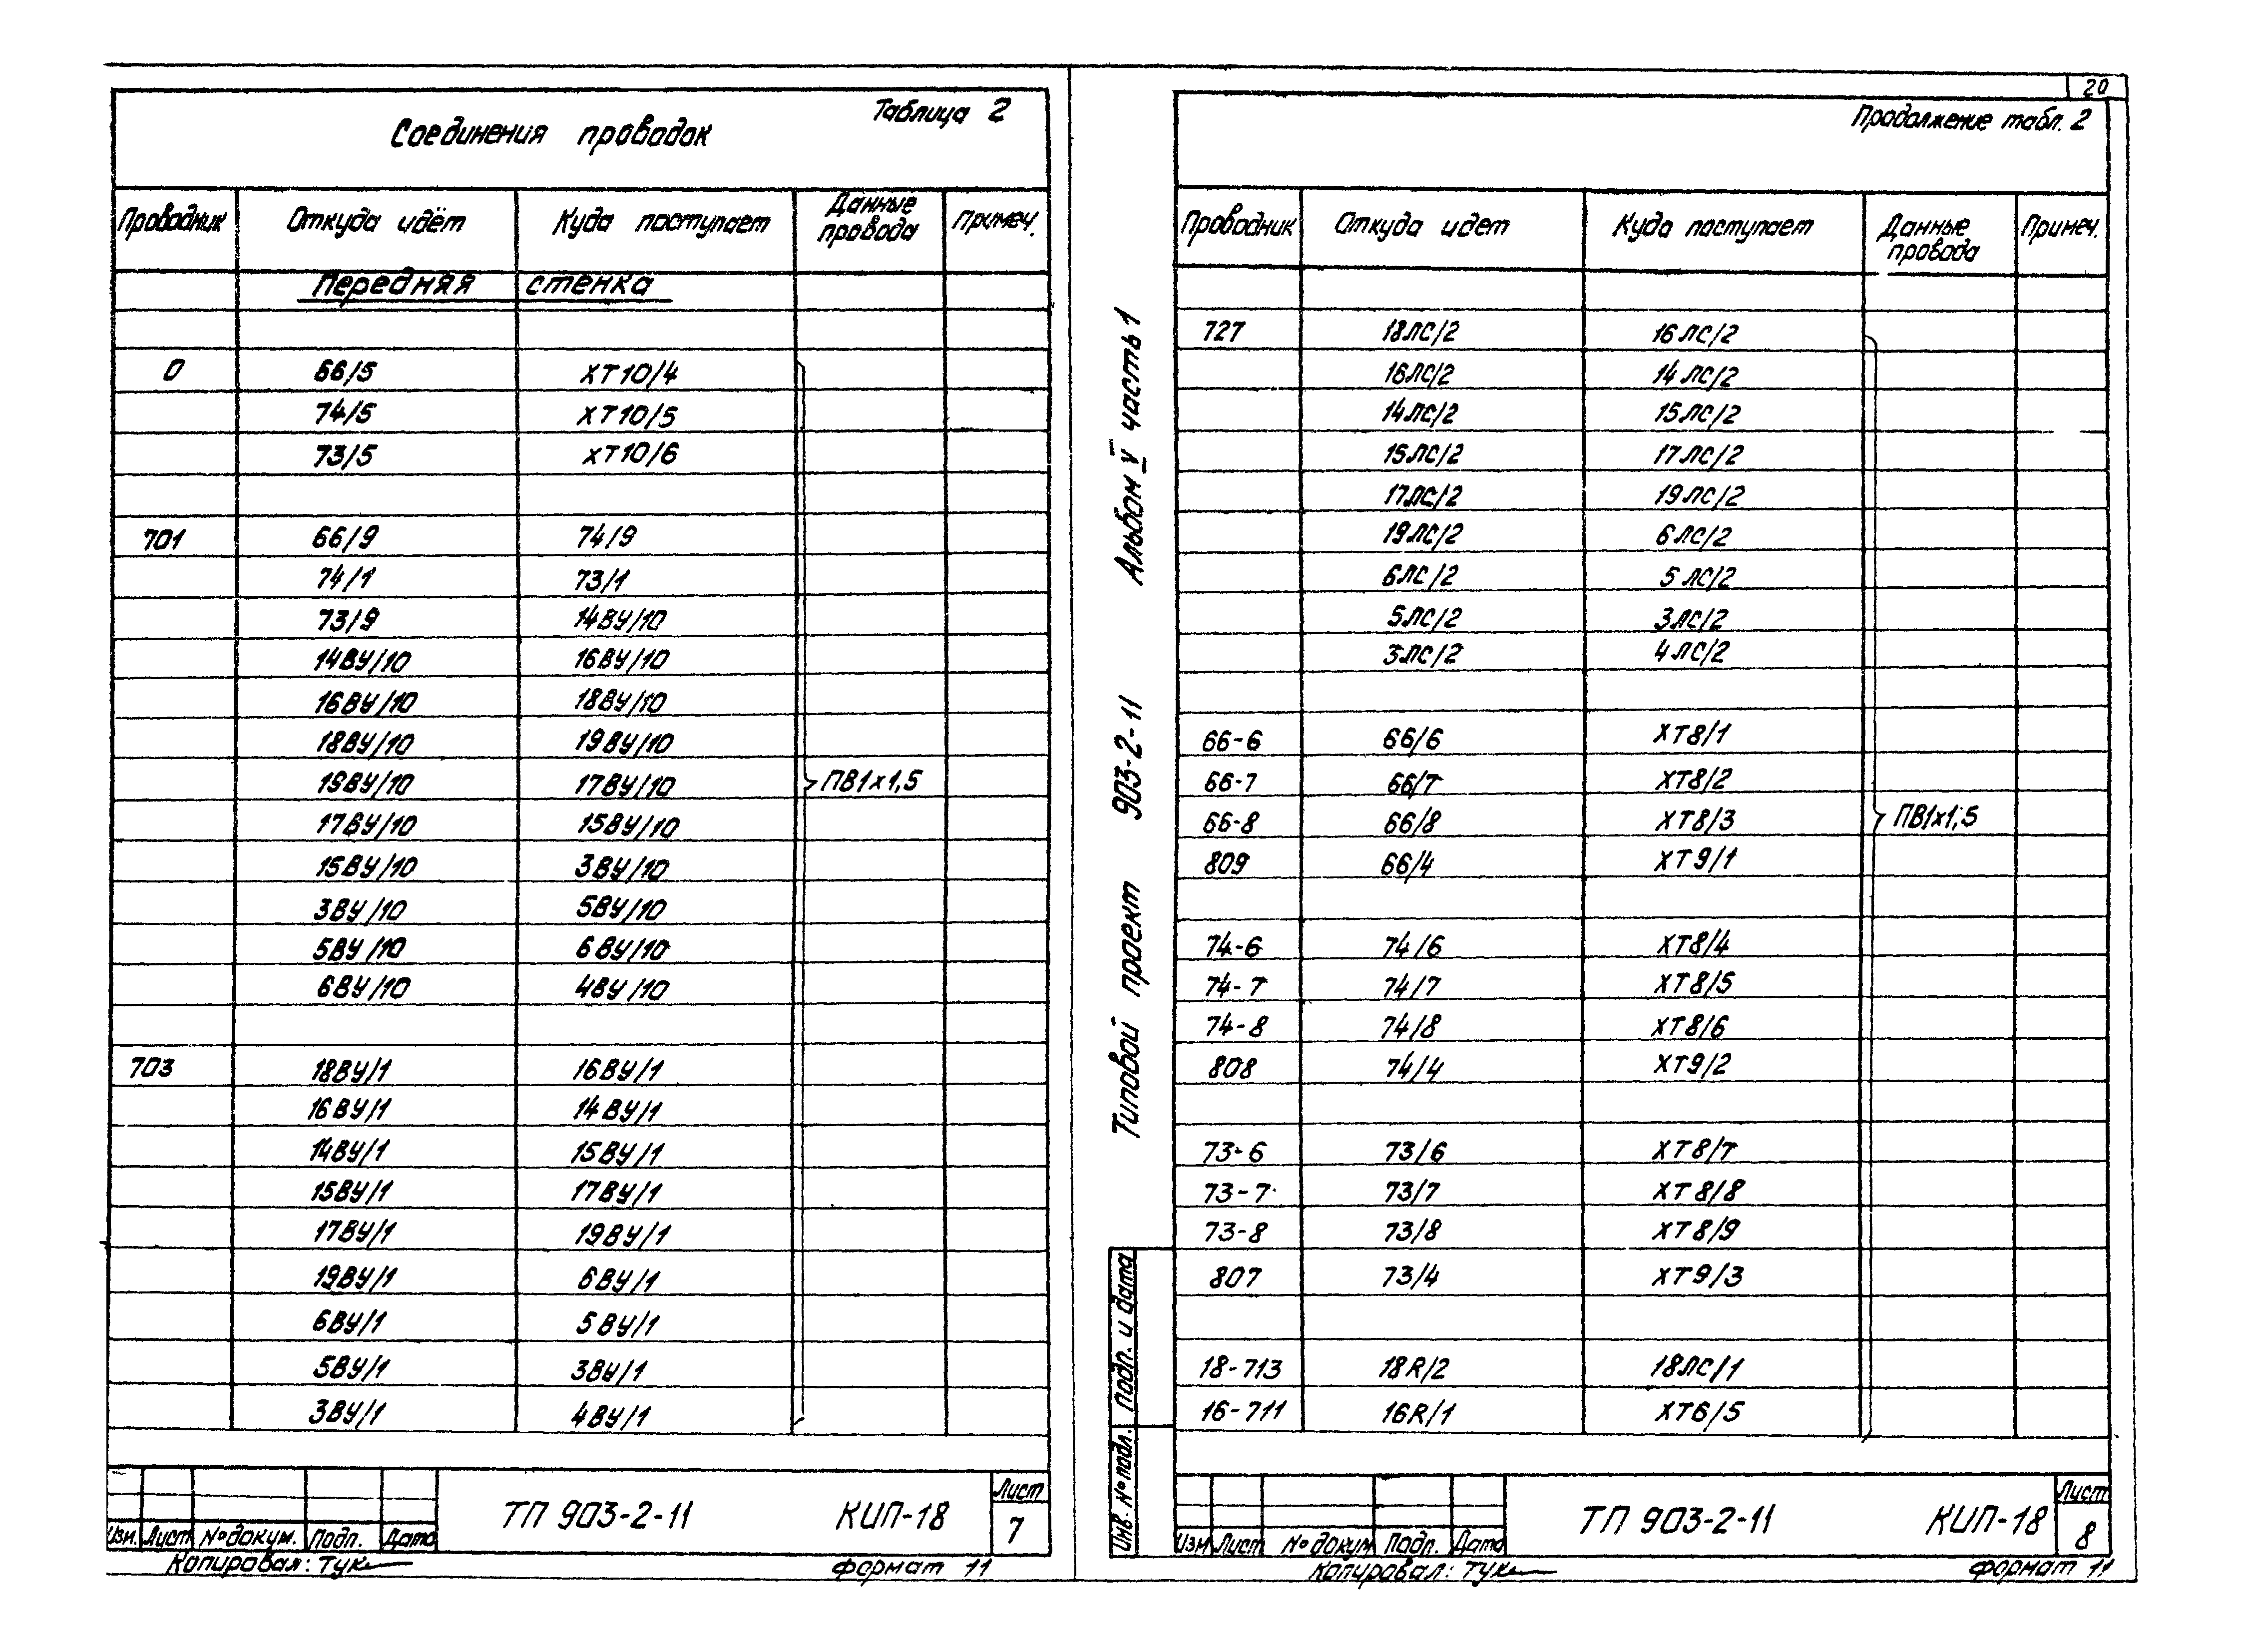 Таблица 2
Соединения проводок
Проводник Откуда идёт Куда поступает Данные провода Примеч.
Передняя стенка
0 66/5 ХТ10/4
74/5 ХТ10/5
73/5 ХТ10/6
701 66/9 74/9
74/1 73/1
73/9 14ВУ/10
14ВУ/10 16ВУ/10
16ВУ/10 18ВУ/10
18ВУ/10 19ВУ/10
19ВУ/10 17ВУ/10 ПВ1х1,5
17ВУ/10 15ВУ/10
15ВУ/10 3ВУ/10
3ВУ/10 5ВУ/10
5ВУ/10 6ВУ/10
6ВУ/10 4ВУ/10
703 18ВУ/1 16ВУ/1
16ВУ/1 14ВУ/1
14ВУ/1 15ВУ/1
15ВУ/1 17ВУ/1
17ВУ/1 19ВУ/1
19ВУ/1 6ВУ/1
6ВУ/1 5ВУ/1
5ВУ/1 3ВУ/1
3ВУ/1 4ВУ/1
Изм. Лист № докум. Подп. Дата
ТП 903-2-11 КИП-18
Лист
7
Копировал: Тук
Формат 11
20
Продолжение табл. 2
Проводник Откуда идет Куда поступает Данные провода Примеч.
727 18ЛС/2 16ЛС/2
16ЛС/2 14ЛС/2
14ЛС/2 15ЛС/2
15ЛС/2 17ЛС/2
17ЛС/2 19ЛС/2
19ЛС/2 6ЛС/2
6ЛС/2 5ЛС/2
5ЛС/2 3ЛС/2
3ЛС/2 4ЛС/2
66-6 66/6 ХТ8/1
66-7 66/7 ХТ8/2
66-8 66/8 ХТ8/3 ПВ1х1,5
809 66/4 ХТ9/1
74-6 74/6 ХТ8/4
74-7 74/7 ХТ8/5
74-8 74/8 ХТ8/6
808 74/4 ХТ9/2
73-6 73/6 ХТ8/7
73-7 73/7 ХТ8/8
73-8 73/8 ХТ8/9
807 73/4 ХТ9/3
18-713 18R/2 18ЛС/1
16-711 16R/1 ХТ6/5
Типовой проект 903-2-11 Альбом V часть 1
Подп. и дата
Инв. № подл.
Изм Лист № докум Подп. Дата
ТП 903-2-11 КИП-18
Лист
8
Копировал: Тук
Формат 11